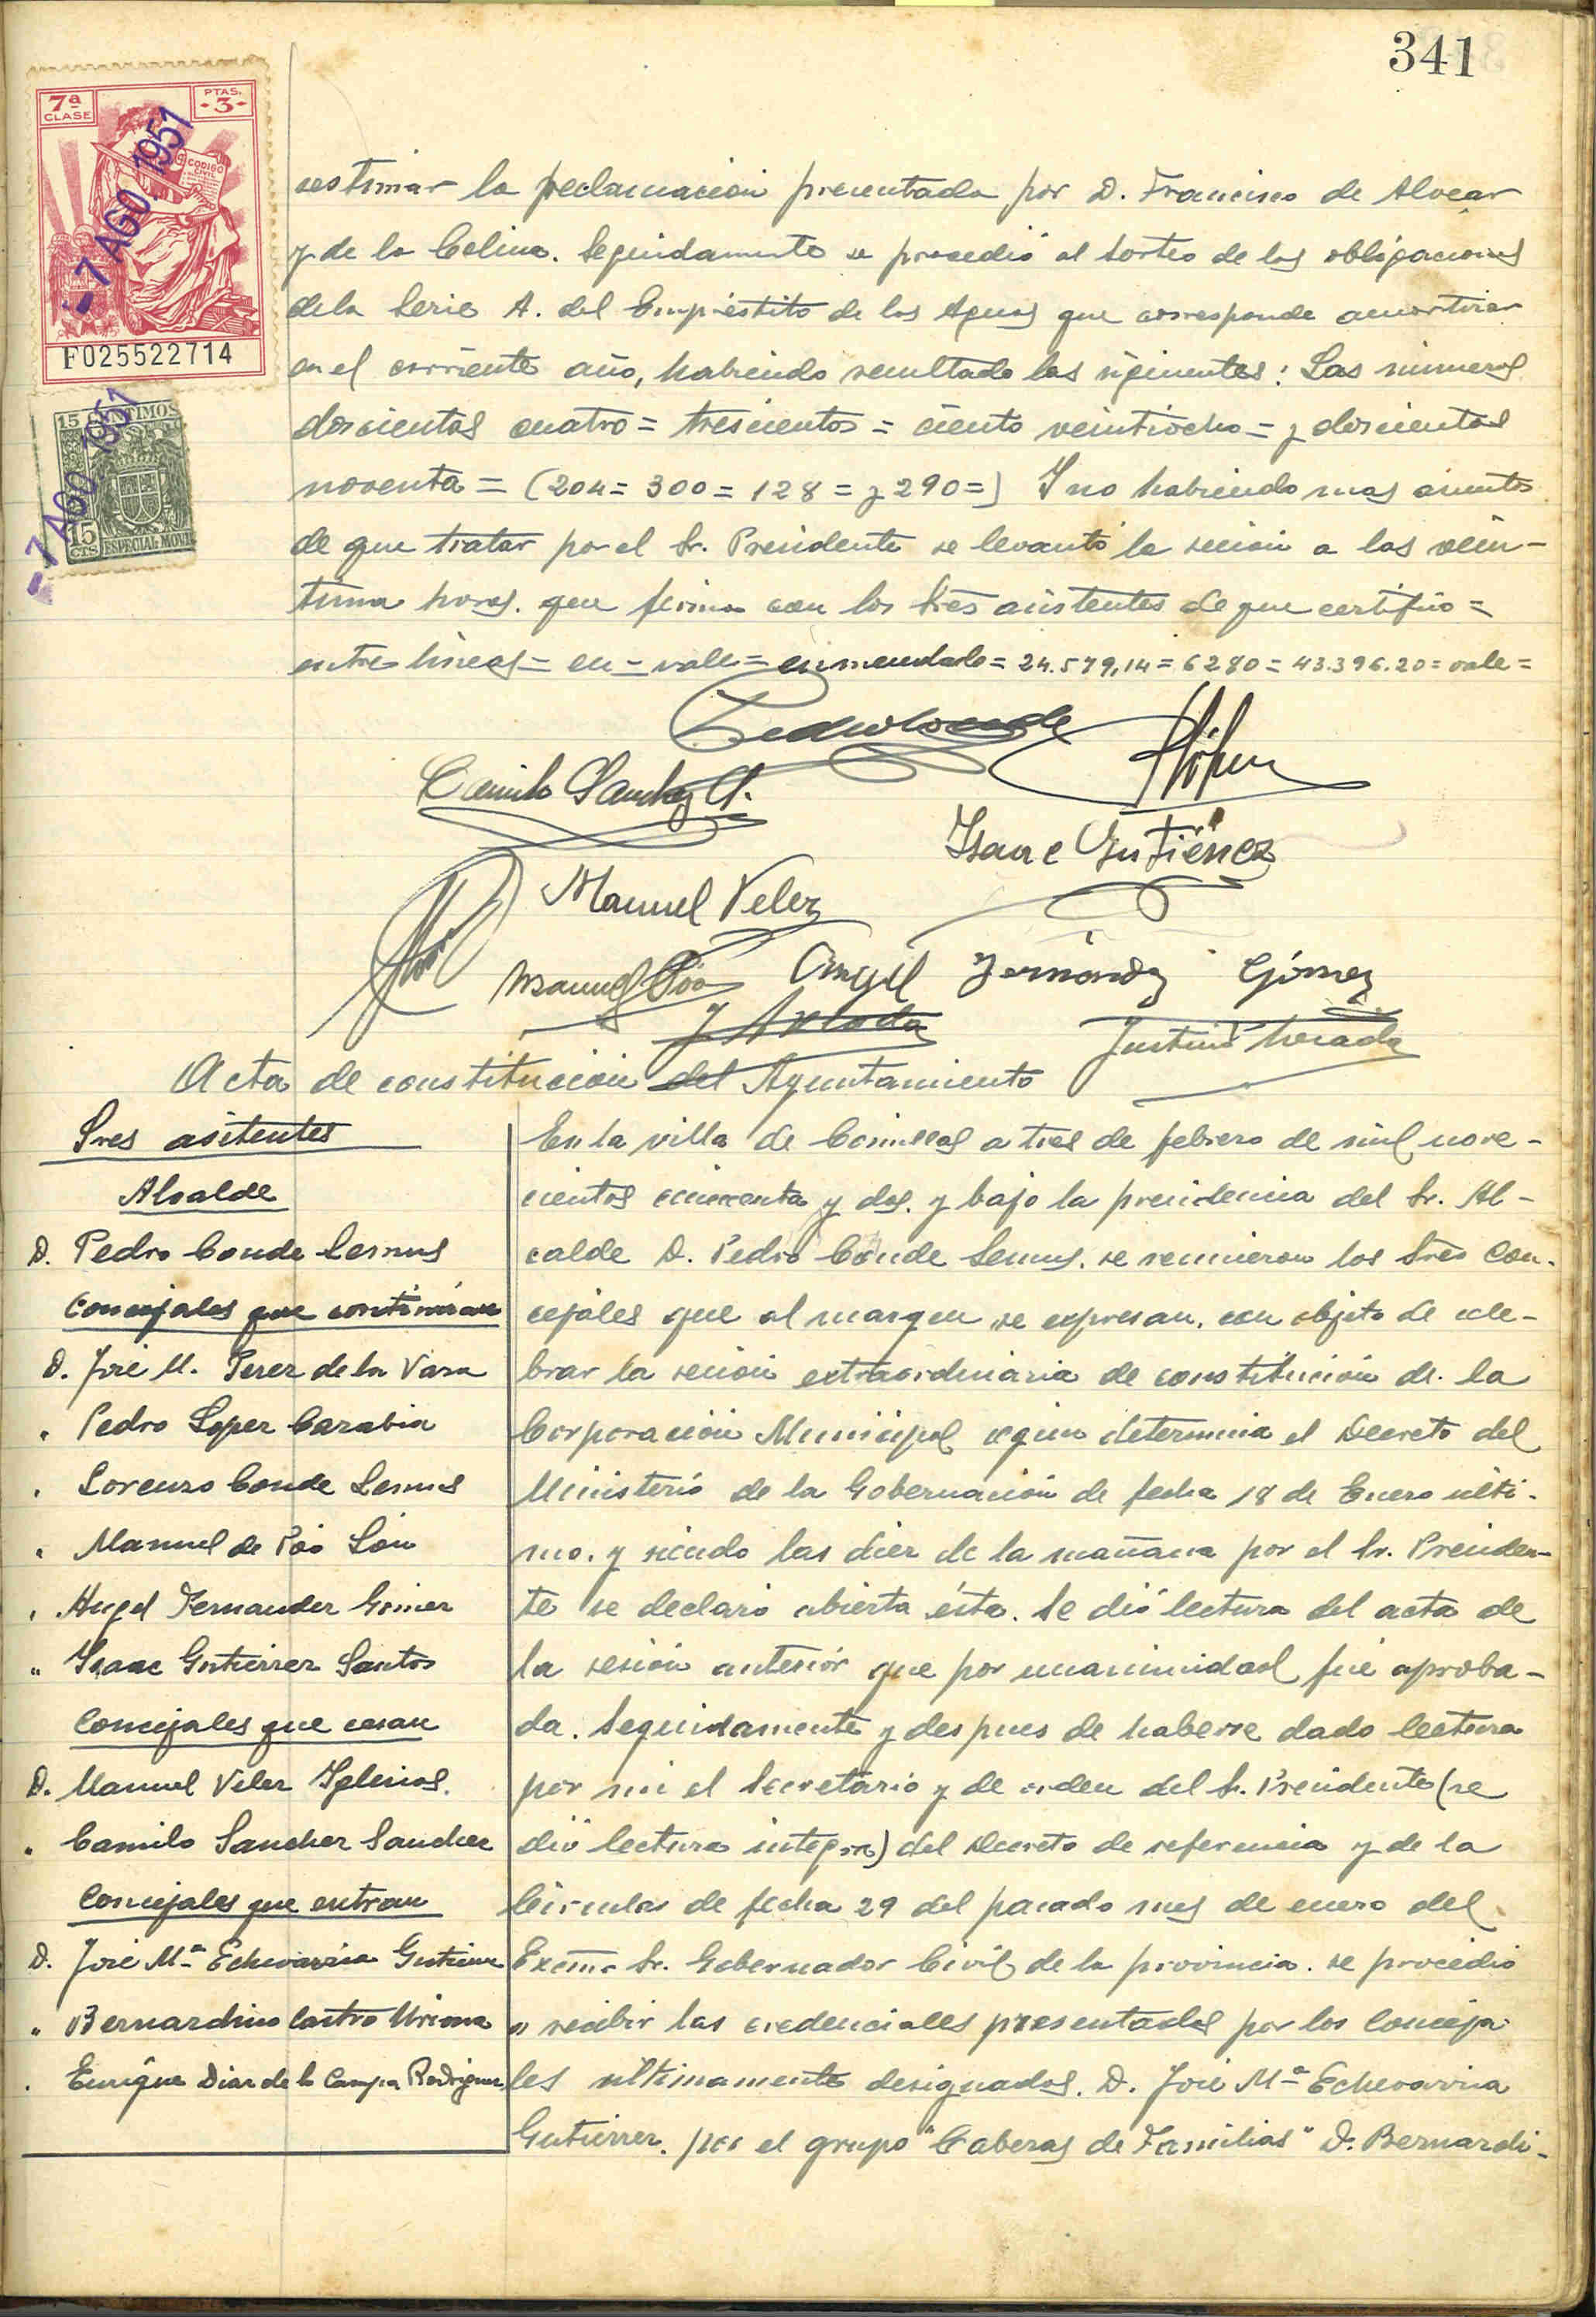 341
7ª CLASE
PTAS. -3-
CODIGO CIVIL
-7 AGO. 1951
F025522714
15 CENTIMOS
-7 AGO. 1951
15 CTS ESPECIAL MOVIL
sestimar la reclamación presentada por D. Francisco de Alvear
y de la Colina. Seguidamente se procedió al sorteo de las obligaciones
de la Serie A. del Empréstito de las Aguas que corresponde amortizar
en el corriente año, habiendo resultado las siguientes: Las numeros
doscientos cuatro = trescientos = ciento veintiocho = y doscientos
noventa = (204 = 300 = 128 = y 290 =) Y no habiendo mas asuntos
de que tratar por el Sr. Presidente se levantó la sesión a las vein-
tiuna horas. que firma con los Sres asistentes de que certifico =
entre lineas = en = vale = enmendado = 24.579,14 = 6280 = 43.396.20 = vale =
Pedro Conde
Camilo Sanchez S.
Isaac Gutiérrez
Manuel Velez
Manuel Póo
Angel Fernández Gómez
Acta de constitución del Ayuntamiento
Sres asitentes
Alcalde
D. Pedro Conde Lesmus
Concejales que continúan
D. José M. Perez de la Vara
" Pedro Lopez Carabia
" Lorenzo Conde Lesmus
" Manuel de Póo
" Angel Fernandez Gomez
" Isaac Gutierrez Santos
Concejales que cesan
D. Manuel Velez Iglesias.
" Camilo Sanchez Sanchez
Concejales que entran
D. José Mª Echevarria Gutierrez
" Bernardino Castro
" Enrique Diaz de la Campa Rodriguez
En la villa de Comillas a tres de febrero de mil nove-
cientos cincuenta y dos. y bajo la presidencia del Sr. Al-
calde D. Pedro Conde Lesmus. se reunieron los Sres Con-
cejales que al margen se expresan. con objeto de cele-
brar la sesión extraordinaria de constitución de la
Corporación Municipal según determina el Decreto del
Ministerio de la Gobernación de fecha 18 de Enero últi-
mo. y siendo las diez de la mañana por el Sr. Presiden-
te se declaró abierta ésta. Se dió lectura del acta de
la sesión anterior que por unanimidad fué aproba-
da. Seguidamente y despues de haberse dado lectura
por mi el Secretario y de orden del Sr. Presidente (se
dió lectura integra) del Decreto de referencia y de la
Circular de fecha 29 del pasado mes de enero del
Excmo Sr. Gobernador Civil de la provincia. se procedió
a recibir las credenciales presentadas por los Conceja-
les ultimamente designados. D. José Mª Echevarria
Gutierrez. por el grupo "Cabezas de Familias" D. Bernardi-